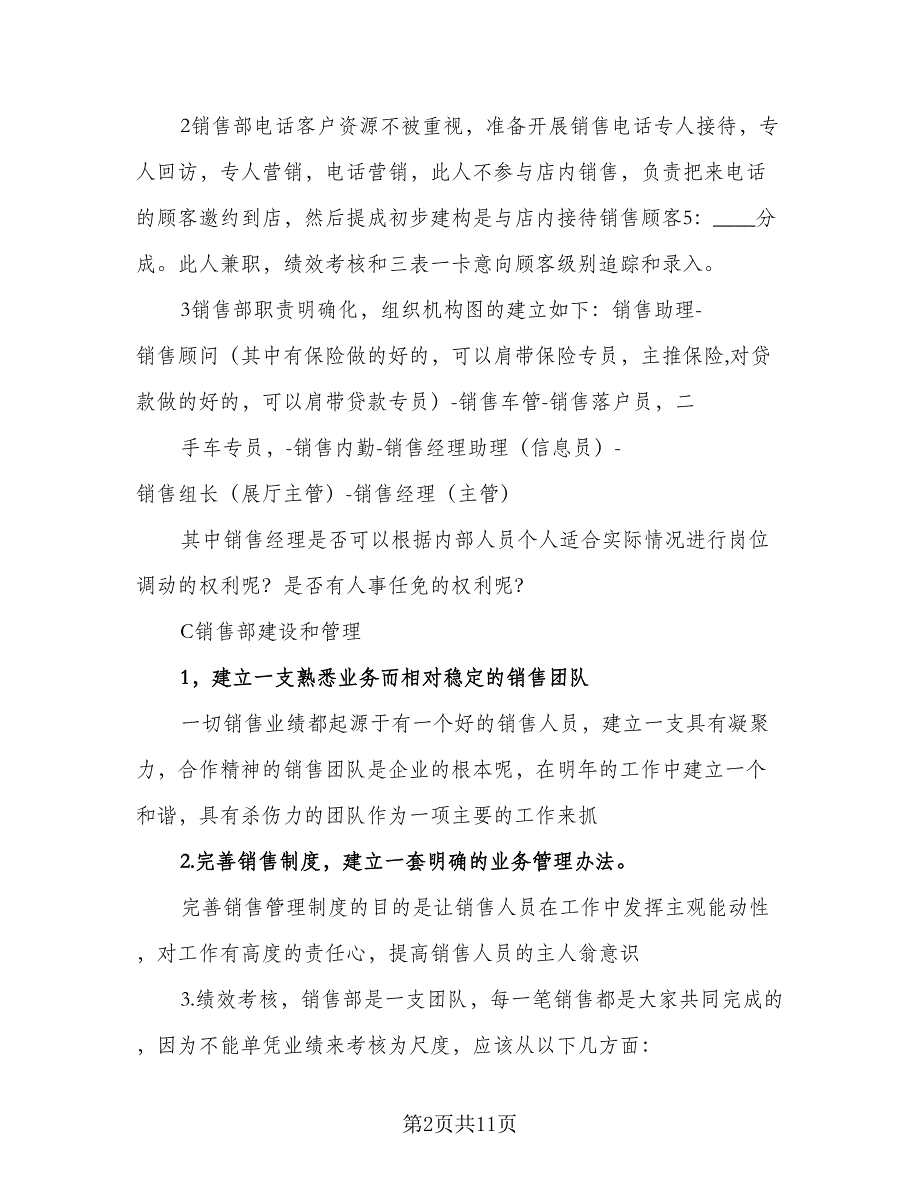 2销售部电话客户资源不被重视，准备开展销售电话专人接待，专
人回访，专人营销，电话营销，此人不参与店内销售，负责把来电话
的顾客邀约到店，然后提成初步建构是与店内接待销售顾客5：____分
成。此人兼职，绩效考核和三表一卡意向顾客级别追踪和录入。
3销售部职责明确化，组织机构图的建立如下：销售助理-
销售顾问（其中有保险做的好的，可以肩带保险专员，主推保险,对贷
款做的好的，可以肩带贷款专员）-销售车管-销售落户员，二
手车专员，-销售内勤-销售经理助理（信息员）-
销售组长（展厅主管）-销售经理（主管）
其中销售经理是否可以根据内部人员个人适合实际情况进行岗位
调动的权利呢？是否有人事任免的权利呢？
C销售部建设和管理
1，建立一支熟悉业务而相对稳定的销售团队
一切销售业绩都起源于有一个好的销售人员，建立一支具有凝聚
力，合作精神的销售团队是企业的根本呢，在明年的工作中建立一个
和谐，具有杀伤力的团队作为一项主要的工作来抓
2.完善销售制度，建立一套明确的业务管理办法。
完善销售管理制度的目的是让销售人员在工作中发挥主观能动性
，对工作有高度的责任心，提高销售人员的主人翁意识
3.绩效考核，销售部是一支团队，每一笔销售都是大家共同完成的
，因为不能单凭业绩来考核为尺度，应该从以下几方面：
第2页共11页